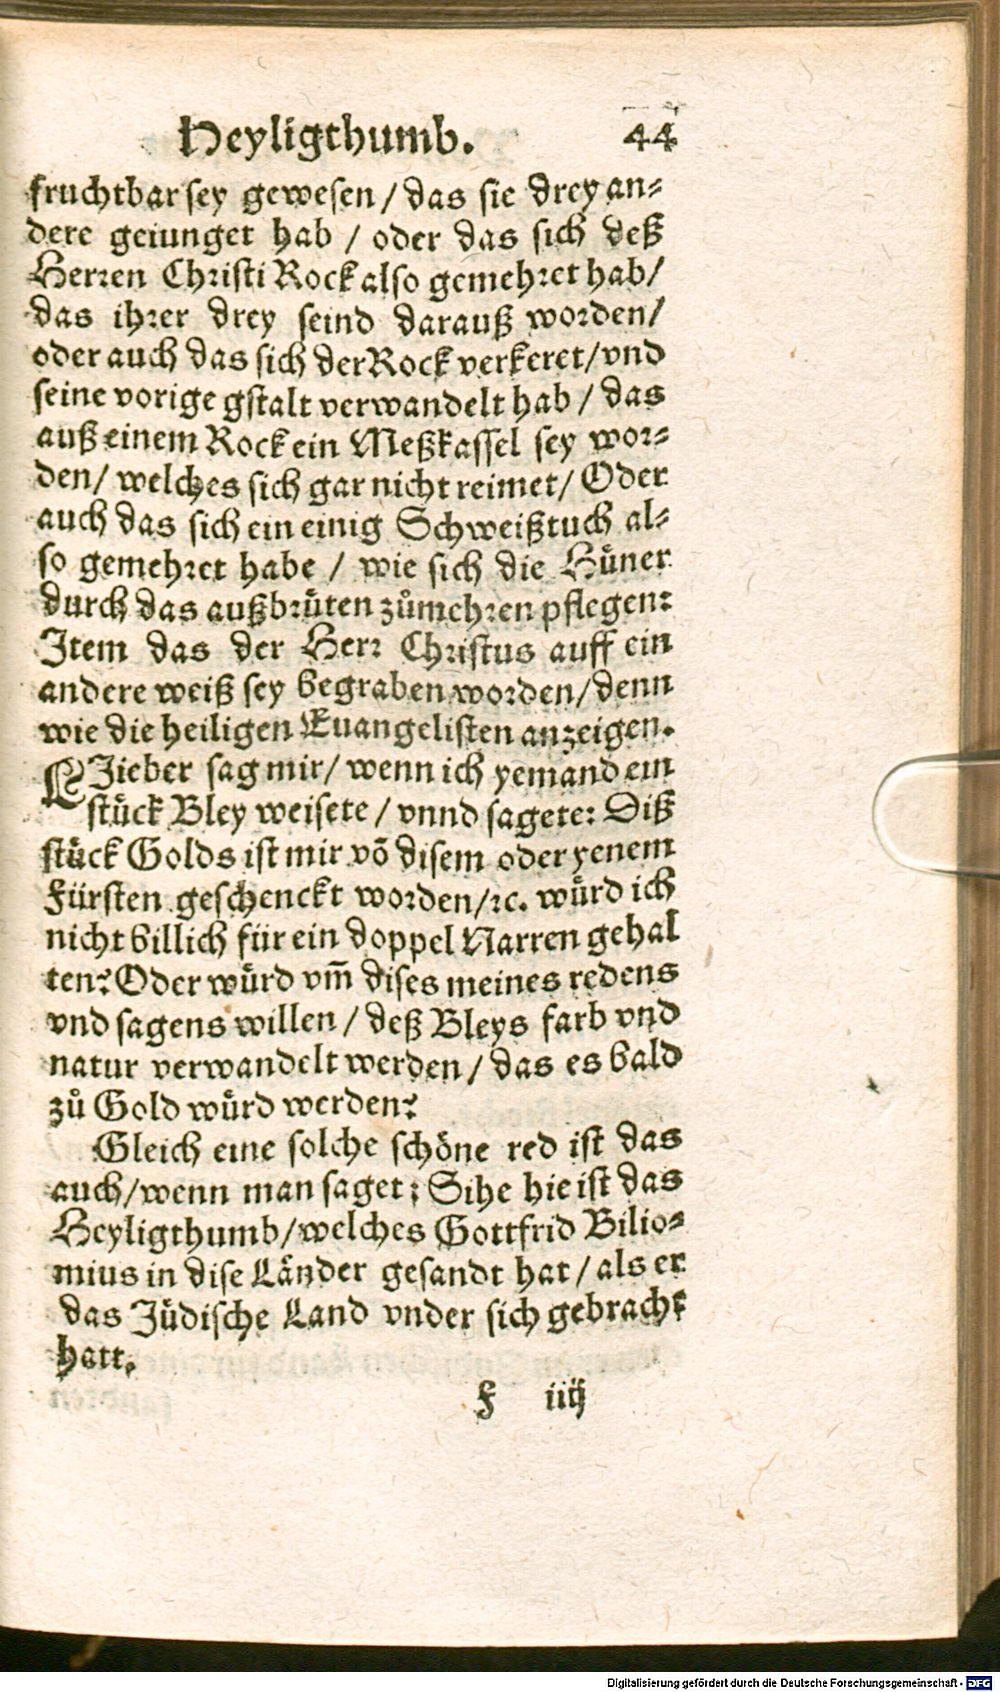 Heyligthumb. 44
fruchtbar sey gewesen / das sie drey an⸗
dere geiunget hab / oder das sich deß
Herren Christi Rock also gemehret hab/
das ihrer drey seind darauß worden/
oder auch das sich der Rock verkeret/vnd
seine vorige gstalt verwandelt hab / das
auß einem Rock ein Meßkassel sey wor⸗
den/ welches sich gar nicht reimet/ Oder
auch das sich ein einig Schweißtuch al⸗
so gemehret habe / wie sich die Hüner
durch das außbrüten zůmehren pflegen?
Item das der Herr Christus auff ein
andere weiß sey begraben worden/denn
wie die heiligen Euangelisten anzeigen.
LIieber sag mir/ wenn ich yemand ein
stück Bley weisete / vnnd sagete: Diß
stück Golds ist mir võ disem oder yenem
Fürsten geschenckt worden/ꝛc. würd ich
nicht billich für ein doppel Narren gehal
ten? Oder würd vm̄ dises meines redens
vnd sagens willen / deß Bleys farb vnd
natur verwandelt werden / das es bald
zů Gold würd werden?
Gleich eine solche schöne red ist das
auch/wenn man saget; Sihe hie ist das
Heyligthumb/welches Gottfrid Bilio⸗
mius in dise Länder gesandt hat / als er
das Jüdische Land vnder sich gebracht
hatt.
F iiij
Digitalisierung gefördert durch die Deutsche Forschungsgemeinschaft - DFG